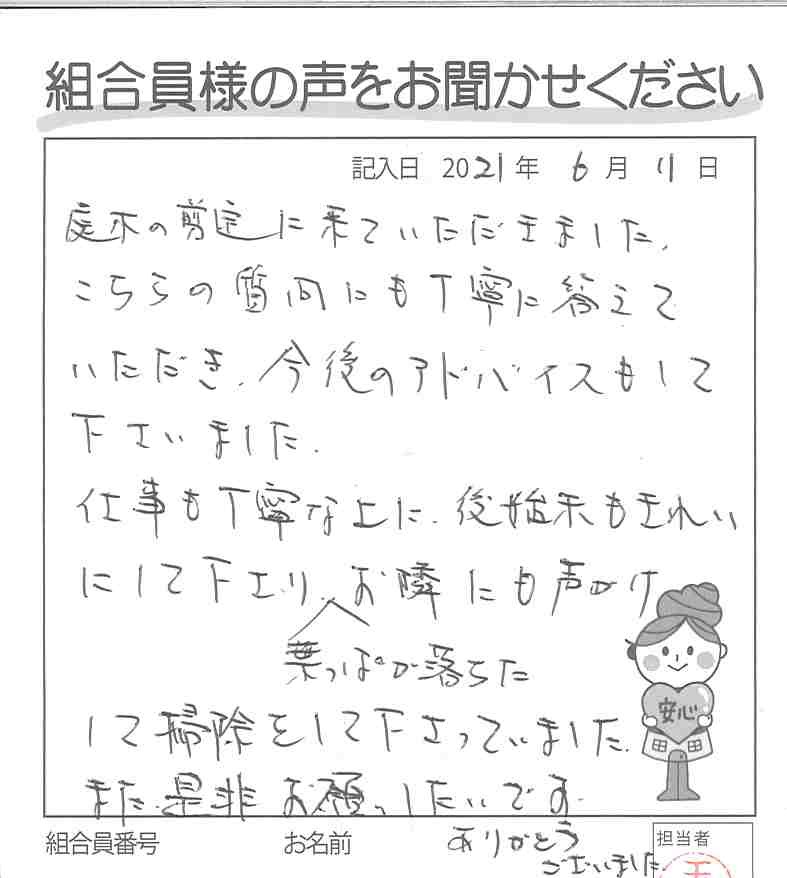 組合員様の声をお聞かせください
記入日 2021年 6月 11日
庭木の剪定に来ていただきました。
こちらの質問にも丁寧に答えて
いただき、今後のアドバイスもして
下さいました。
仕事も丁寧な上に、後始末もきれい
にして下さり、お隣にも声かけ
葉っぱが落ちた
して掃除をして下さっていました。
また是非お願いしたいです。
ありがとう
ございました
安心
組合員番号 お名前 担当者